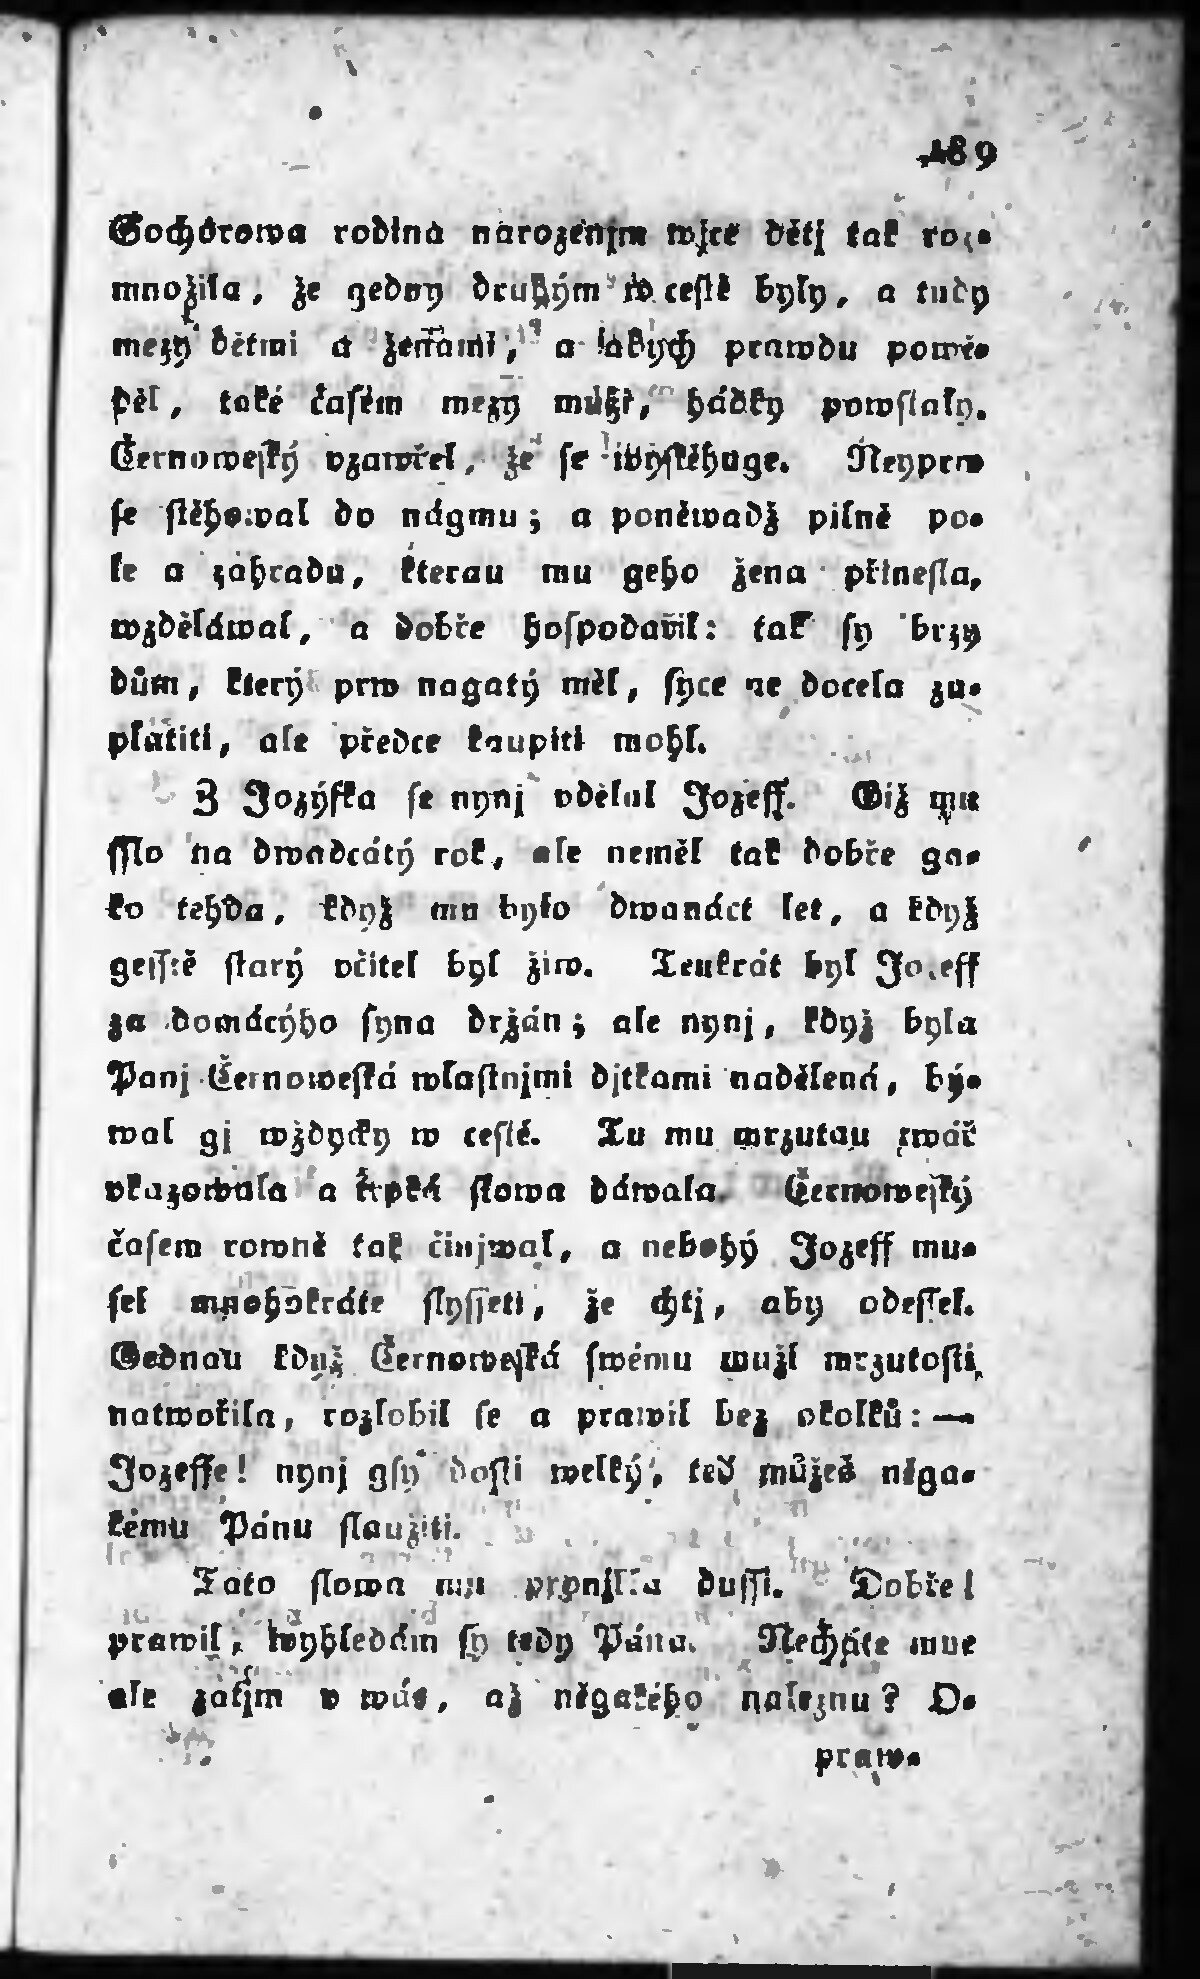 189
Gochorowa rodina narozenjm wjce dětj tak roz-
množila, že gedny druhým w cestě byly, a tudy
mezy dětmi a ženami, a abych prawdu powě-
děl, také časem mezy muži, hádky powstaly.
Černoweský vzawřel, že se wystěhuge. Neyprw
se stěhowal do nágmu; a poněwadž pilně po-
le a záhradu, kterau mu geho žena přinesla,
wzděláwal, a dobře hospodařil: tak sy brzy
dům, který prw nagatý měl, syce ne docela za-
platiti, ale předce kaupiti mohl.
Z Jozýfka se nynj vdělal Jozeff. Giž mu
sslo na dwadcátý rok, ale neměl tak dobře ga-
ko tehda, když mu bylo dwanáct let, a když
gesstě starý včitel byl žiw. Tenkrát byl Jozeff
za domácýho syna držán; ale nynj, když byla
Panj Černoweská wlastnjmi djtkami nadělená, bý-
wal gj wždycky w cestě. Tu mu mrzutau twář
vkazowala a trpká slowa dáwala. Černoweský
časem rowně tak činjwal, a nebohý Jozeff mu-
sel mnohokráte slysseti, že chtj, aby odessel.
Gednau když Černoweská swému muži mrzutosti
natwořila, rozlobil se a prawil bez okolků: —
Jozeffe! nynj gsy dosti welký, teď můžeš něga-
kému Pánu slaužiti.
Tato slowa mu pronjkla dussi. Dobře!
prawil, wyhledám sy tedy Pána. Nechgte mne
ale zatjm v wás, až něgakého naleznu? O-
praw-